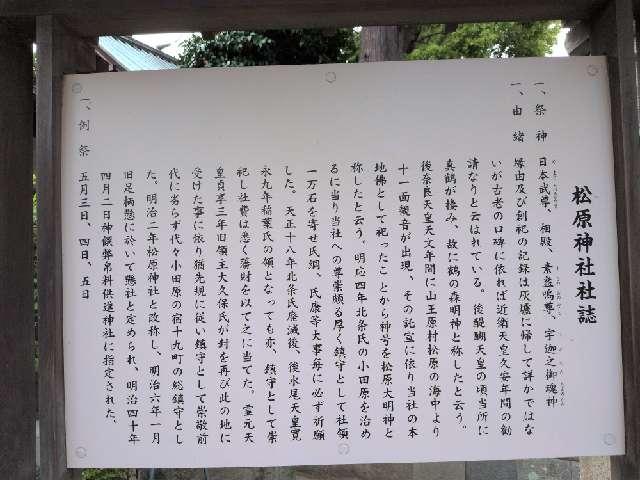 松原神社社誌
一、祭神 日本武尊、相殿、素盞嗚尊、宇迦之御魂神
一、由緒 縁由及び創祀の記録は灰燼に帰して詳かではな
いが古老の口碑に依れば近衛天皇久安年間の勧
請なりと云はれている。後醍醐天皇の頃当所に
真鶴が棲み、故に鶴の森明神と称したと云う。
後奈良天皇天文年間に山王原村松原の海中より
十一面観音が出現、その託宣に依り当社の本
地佛として祀ったことから神号を松原大明神と
称したと云う。明応四年北条氏の小田原を治め
るに当り当社への尊崇頗る厚く鎮守として社領
一万石を寄せ氏綱、氏康等大事毎に必ず祈願
した。天正十八年北条氏廃滅後、後水尾天皇寛
永九年稲葉氏の領となっても亦、鎮守として崇
祀し社費は悉く藩財を以て之に当てた。霊元天
皇貞享三年旧領主大久保氏が封を再び此の地に
受けた事に依り猶先規に従い鎮守として崇敬前
代に劣らず代々小田原の宿十九町の総鎮守とし
た。明治二年松原神社と改称し、明治六年一月
旧足柄懸に於いて懸社と定められ、明治四十年
四月二日神饌幣帛料供進神社に指定された、
一、例祭 五月三日、四日、五日